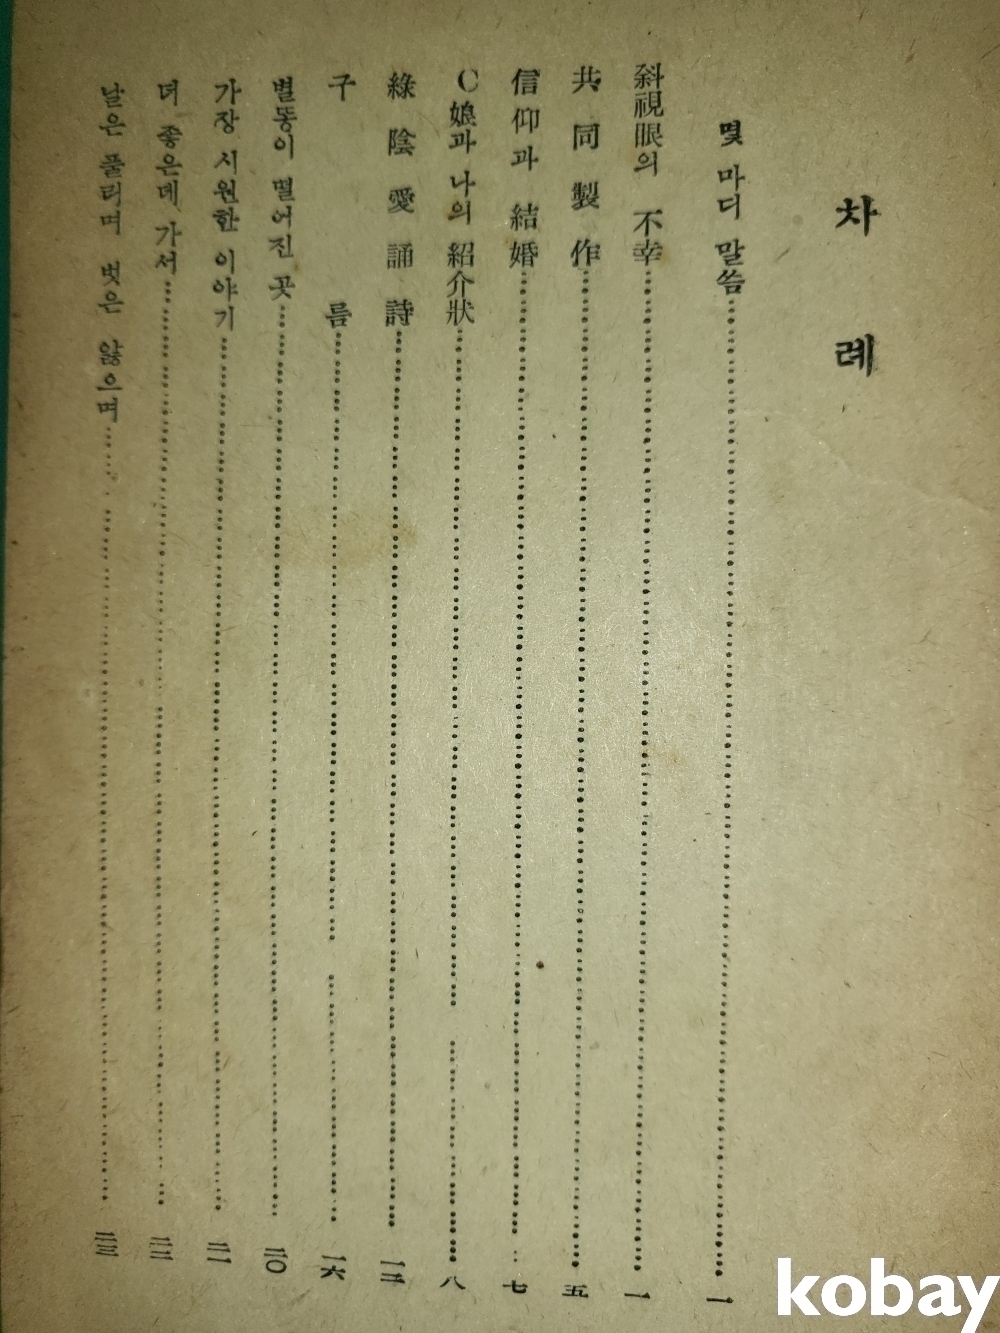 차례
몇 마디 말씀……一
斜視眼의 不幸……一
共同製作……五
信仰과 結婚……七
C娘과 나의 紹介狀……八
綠陰愛誦詩……一二
子름……一六
별똥이 떨어진 곳……二〇
가장 시원한 이야기……二一
더 좋은데 가서……二二
날은 풀리며 벗은 앓으며……二三
kobay